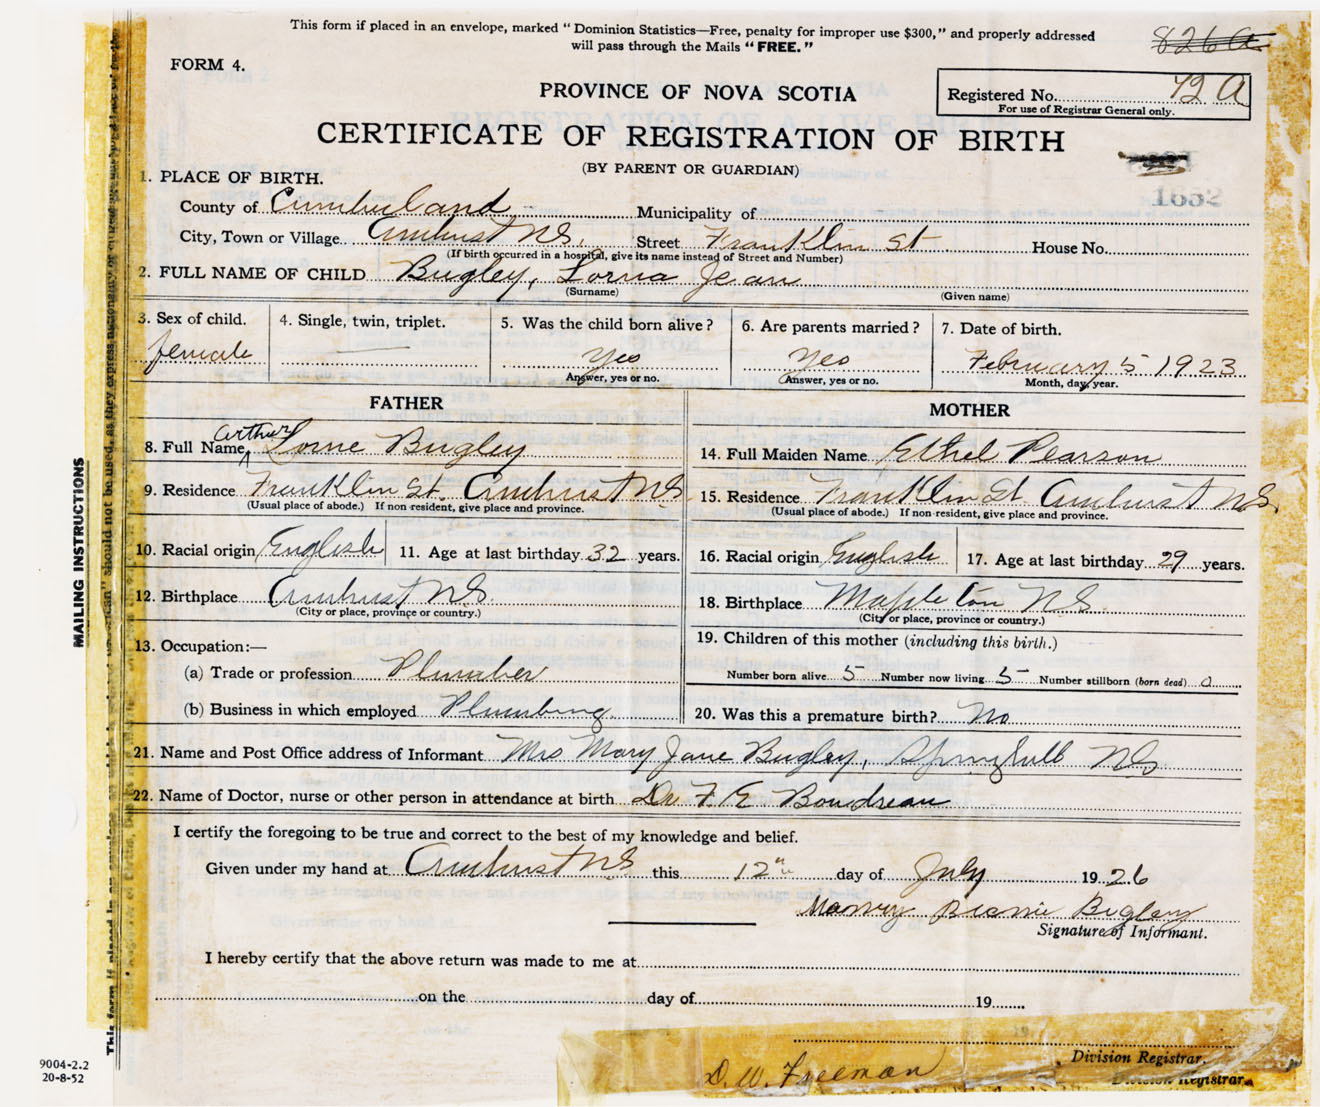 This form if placed in an envelope, marked "Dominion Statistics—Free, penalty for improper use $300," and properly addressed
will pass through the Mails "FREE."
826 A
FORM 4.
PROVINCE OF NOVA SCOTIA
Registered No. 72 A
For use of Registrar General only.
CERTIFICATE OF REGISTRATION OF BIRTH
(BY PARENT OR GUARDIAN)
1652
1. PLACE OF BIRTH.
County of Cumberland Municipality of
City, Town or Village Amherst NS. Street Franklin St House No.
(If birth occurred in a hospital, give its name instead of Street and Number)
2. FULL NAME OF CHILD Bugley, Lorna Jean
(Surname) (Given name)
3. Sex of child. 4. Single, twin, triplet. 5. Was the child born alive? 6. Are parents married? 7. Date of birth.
female Yes Yes February 5 1923
Answer, yes or no. Answer, yes or no. Month, day, year.
FATHER MOTHER
8. Full Name Arthur Lorne Bugley 14. Full Maiden Name Ethel Pearson
9. Residence Franklin St. Amherst NS 15. Residence Franklin St Amherst NS.
(Usual place of abode.) If non-resident, give place and province. (Usual place of abode.) If non-resident, give place and province.
10. Racial origin English 11. Age at last birthday 32 years. 16. Racial origin English 17. Age at last birthday 29 years.
12. Birthplace Amherst NS. 18. Birthplace Mapleton NS.
(City or place, province or country.) (City or place, province or country.)
13. Occupation:— 19. Children of this mother (including this birth.)
(a) Trade or profession Plumber Number born alive 5 Number now living 5 Number stillborn (born dead) 0
(b) Business in which employed Plumbing 20. Was this a premature birth? No
21. Name and Post Office address of Informant Mrs Mary Jane Bugley, Springhill NS
22. Name of Doctor, nurse or other person in attendance at birth Dr F. E Boudreau
I certify the foregoing to be true and correct to the best of my knowledge and belief.
Given under my hand at Amherst NS this 12th day of July 1926
Bigley
Signature of Informant.
I hereby certify that the above return was made to me at
on the day of 19
Division Registrar.
D. W. Freeman
Division Registrar.
MAILING INSTRUCTIONS
9004-2.2
20-8-52